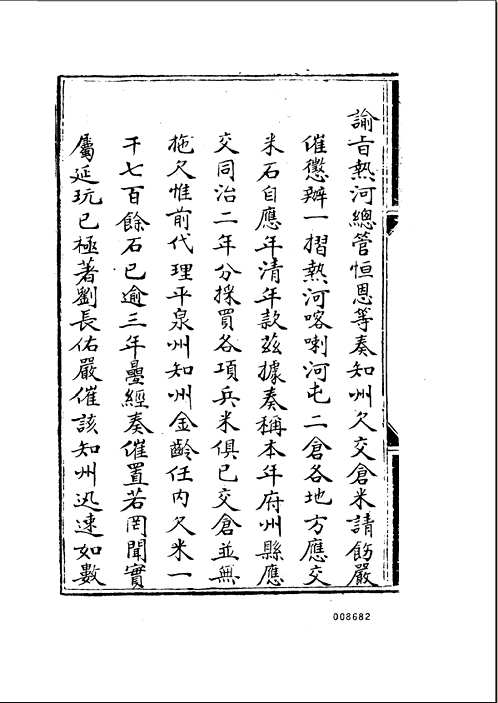 諭旨熱河總管恒恩等奏知州欠交倉米請飭嚴
催懲辦一摺熱河喀喇河屯二倉各地方應交
米石自應年清年款茲據奏稱本年府州縣應
交同治二年分採買各項兵米俱已交倉並無
拖欠惟前代理平泉州知州金齡任內欠米一
千七百餘石已逾三年曡經奏催置若罔聞實
屬延玩已極著劉長佑嚴催該知州迅速如數
008682